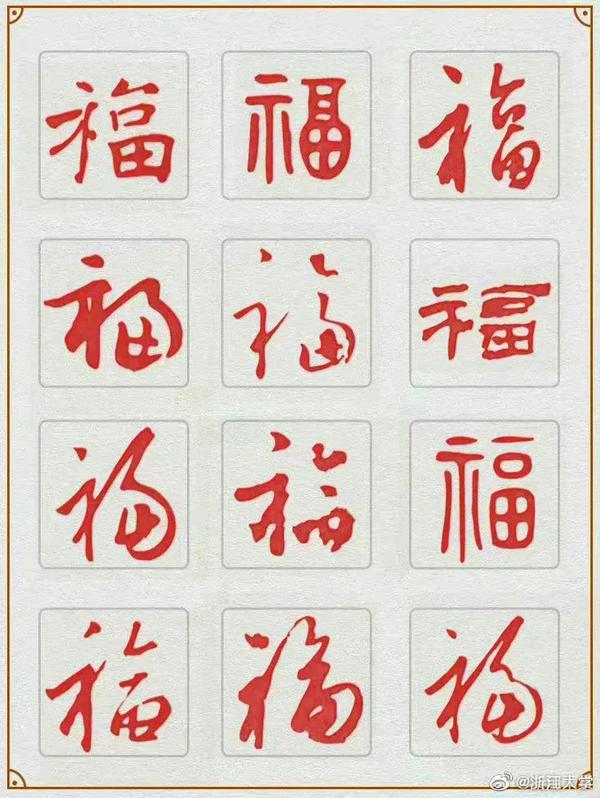 福 福 福
福 福 福
福 福 福
福 福 福
@浙江大学